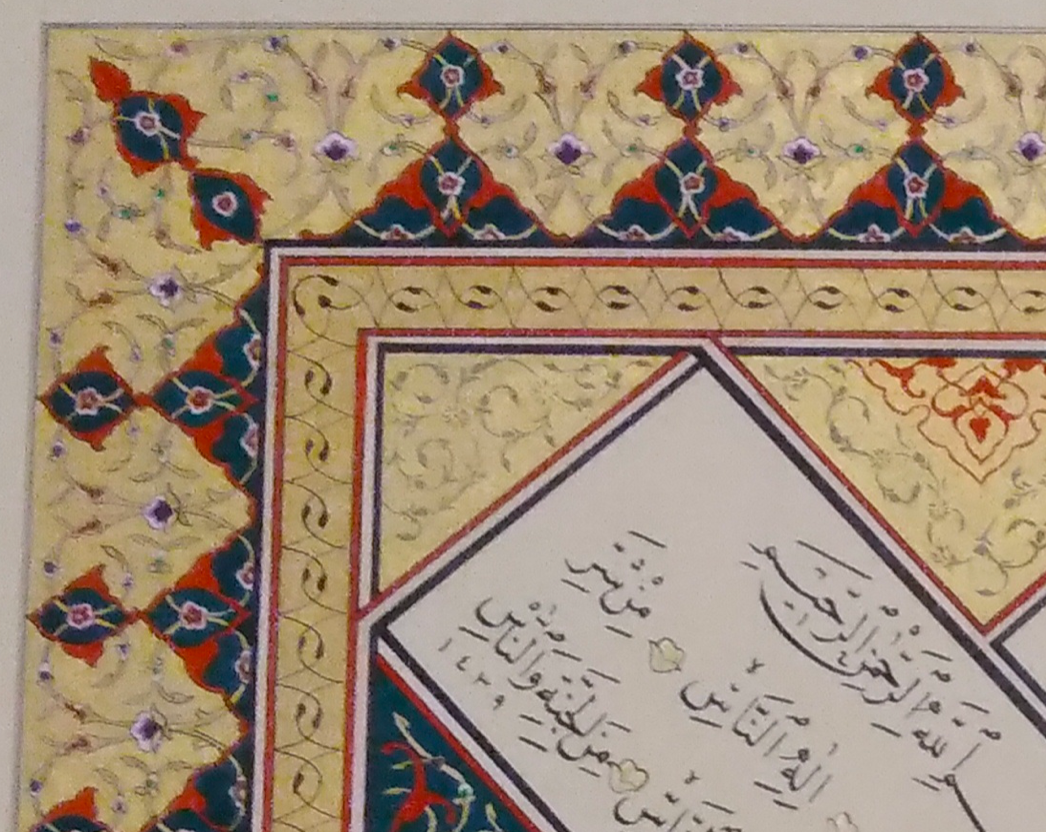 اللهِ الرَّحْمٰنِ الرَّحِيمِ
إِلٰهِ النَّاسِ مِنْ شَرِّ
مِنَ الْجِنَّةِ وَالنَّاسِ
١٤٣٩